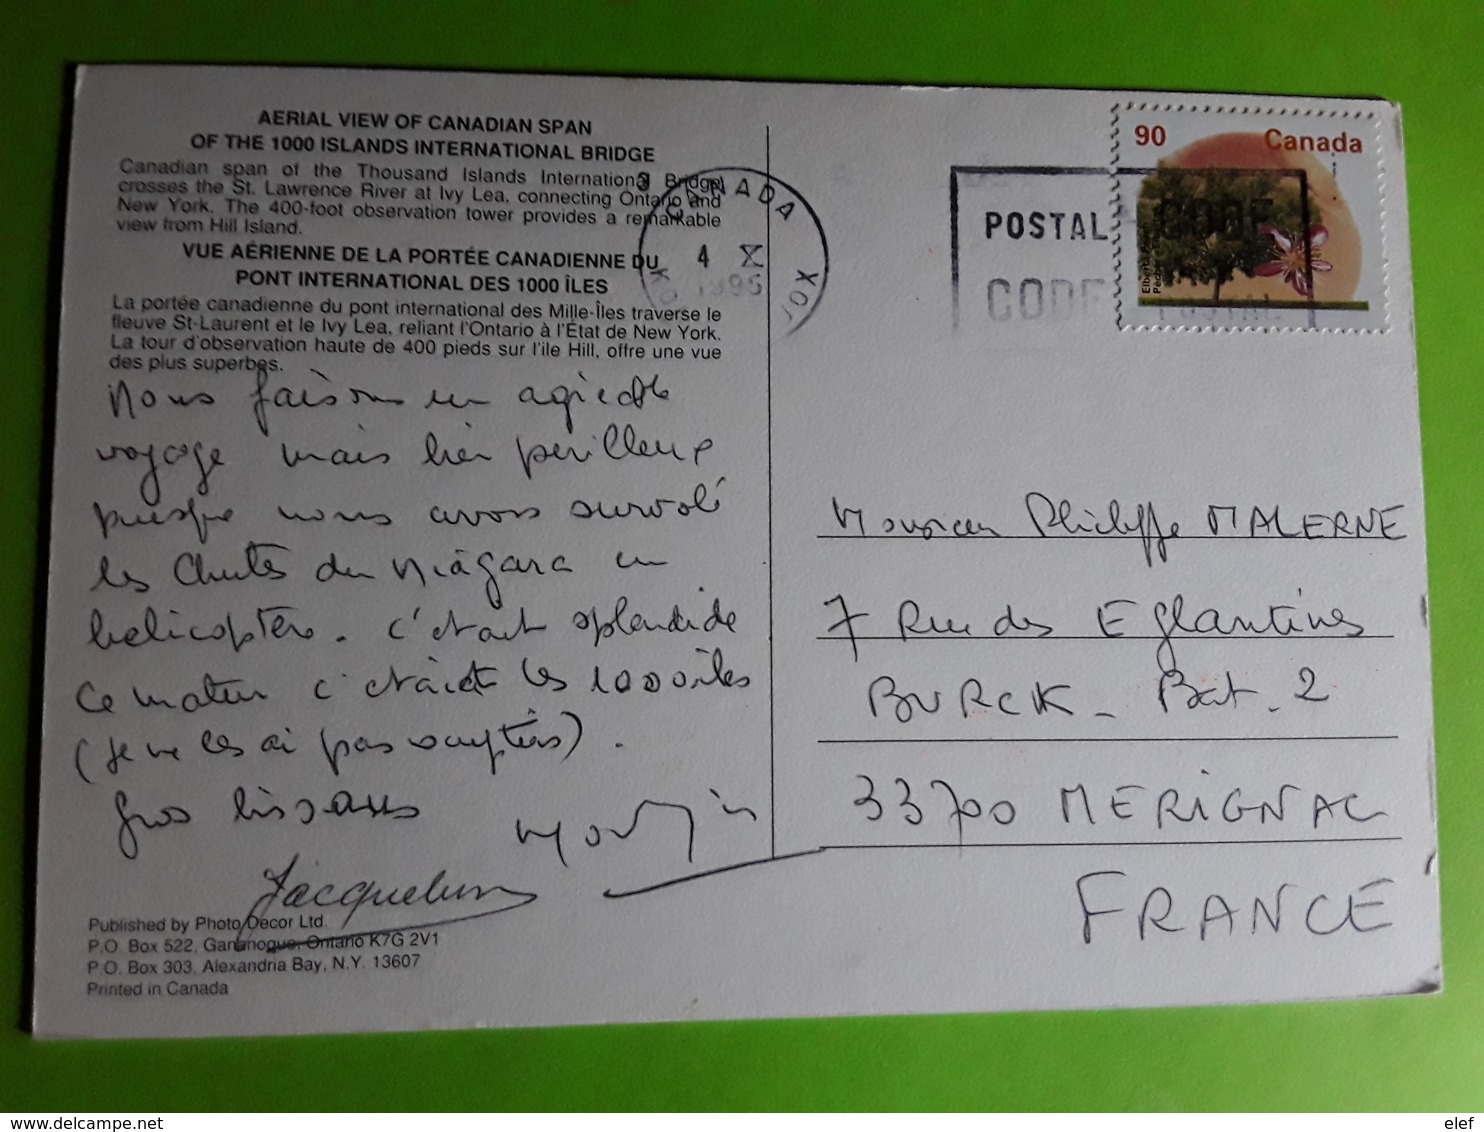 AERIAL VIEW OF CANADIAN SPAN
OF THE 1000 ISLANDS INTERNATIONAL BRIDGE
Canadian span of the Thousand Islands International Bridge
crosses the St. Lawrence River at Ivy Lea, connecting Ontario and
New York. The 400-foot observation tower provides a remarkable
view from Hill Island.
VUE AÉRIENNE DE LA PORTÉE CANADIENNE DU
PONT INTERNATIONAL DES 1000 ÎLES
La portée canadienne du pont international des Mille-Îles traverse le
fleuve St-Laurent et le Ivy Lea, reliant l'Ontario à l'État de New York.
La tour d'observation haute de 400 pieds sur l'ile Hill, offre une vue
des plus superbes.
Nous faisons un agréable
voyage mais bien perilleux
puisque nous avons survolé
les Chutes du Niagara en
helicoptère. c'etait splendide
Ce matin c'etait les 1000 iles
(je ne les ai pas comptées).
Gros bisous
Jacqueline
Published by Photo Decor Ltd.
P.O. Box 522, Gananoque, Ontario K7G 2V1
P.O. Box 303, Alexandria Bay, N.Y. 13607
Printed in Canada
CANADA
4 X
1995
POSTAL CODE
CODE POSTAL
90 Canada
Monsieur Philippe MALERNE
7 Rue des Eglantines
BURCK - Bat. 2
33700 MERIGNAC
FRANCE
elef